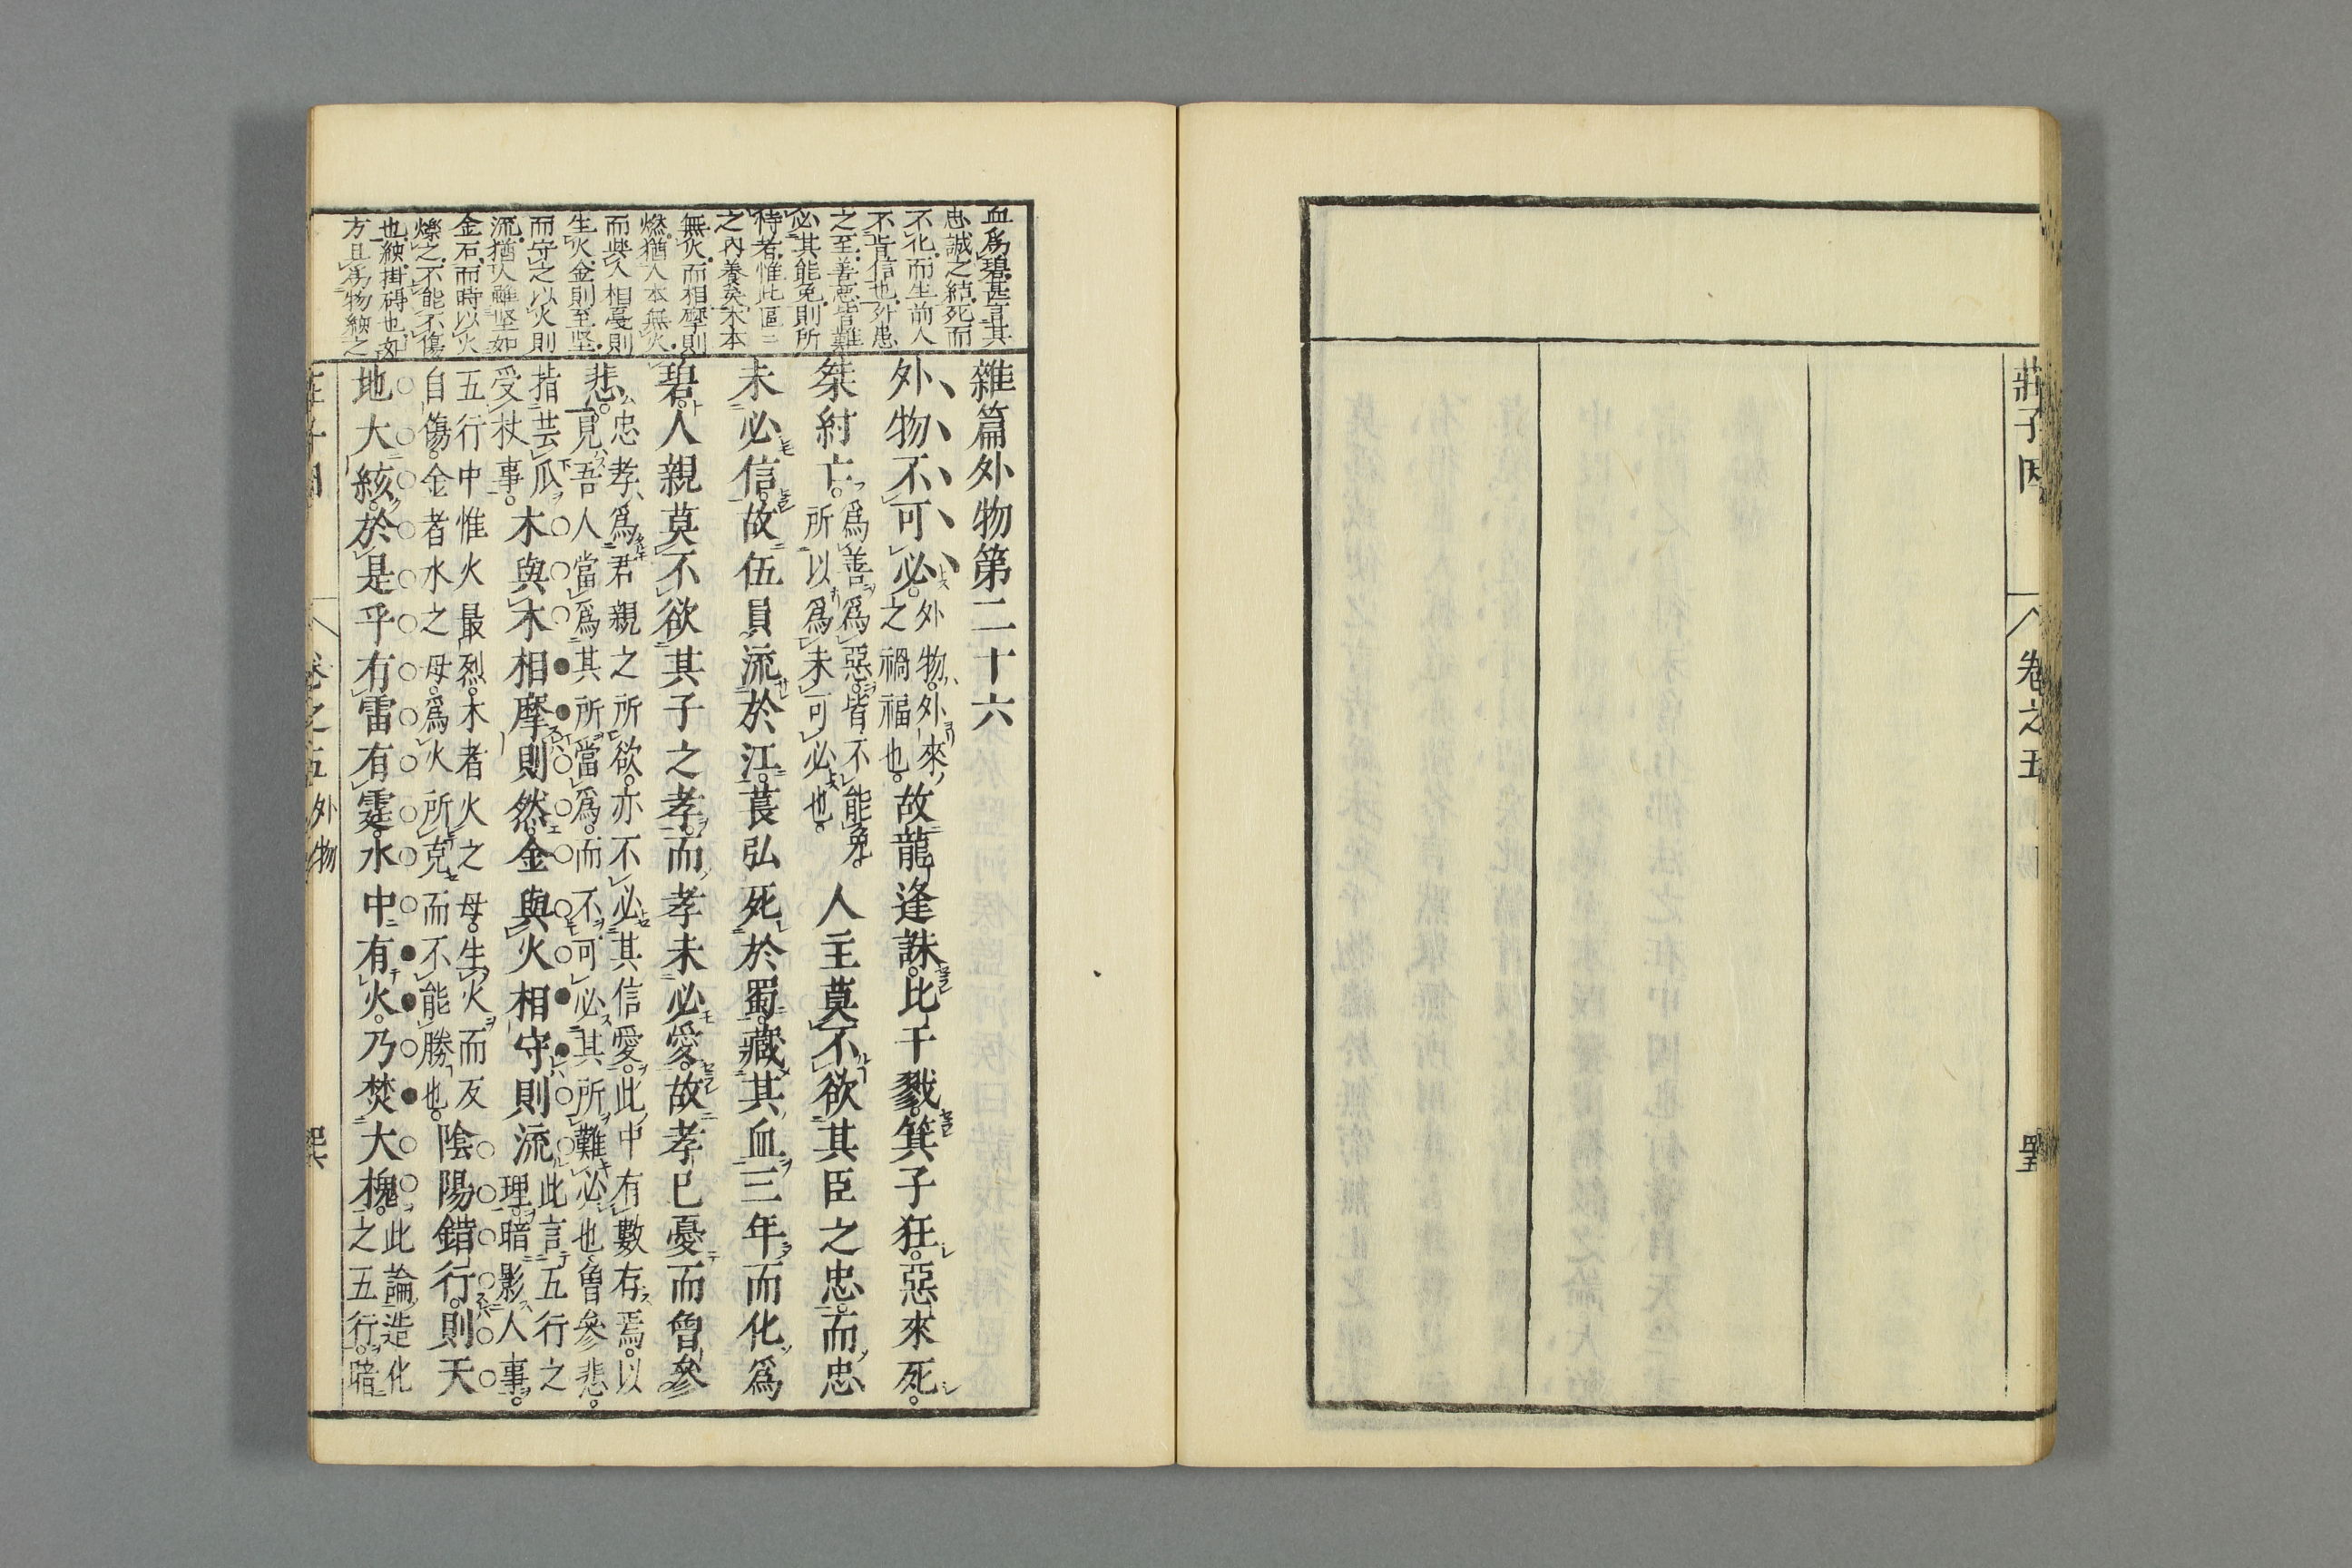 莊子因
卷之五
血爲碧甚言其
忠誠之結死而
不化而生前人
不背信也外患
之至善惡皆難
必其能免則所
恃者惟此區〻
之內養矣木本
無火而相摩則
燃猶人本無火
而與人相憂則
生火金則至堅
而守之以火則
流猶人雖坚如
金石而時以火
爍之不能不傷
也絯掛碍也如
方且爲物絯之
雜篇外物第二十六
外物不可必。外物。外來之禍福也。故龍逢誅。比干戮。箕子狂。惡來死。
桀紂亡。爲善爲惡。皆不能免。所以爲未可必也。人主莫不欲其臣之忠。而忠
未必信。故伍員流於江。萇弘死於蜀。藏其血三年而化爲
碧。人親莫不欲其子之孝。而孝未必愛。故孝已憂而曾參
悲。忠孝爲君親之所欲。亦不必其信愛。此中有數存焉。以見吾人當爲其所當爲。而不可必其所難必也。曾參悲。
指芸瓜受杖事。木與木相摩則然。金與火相守則流。此言五行之理。暗影人事。
五行中惟火最烈。木者火之母。生火而反自傷。金者水之母。爲火所克而不能勝也。陰陽錯行。則天
地大絯。於是乎有雷有霆。水中有火。乃焚大槐。此論造化之五行。暗
卷之五 外物